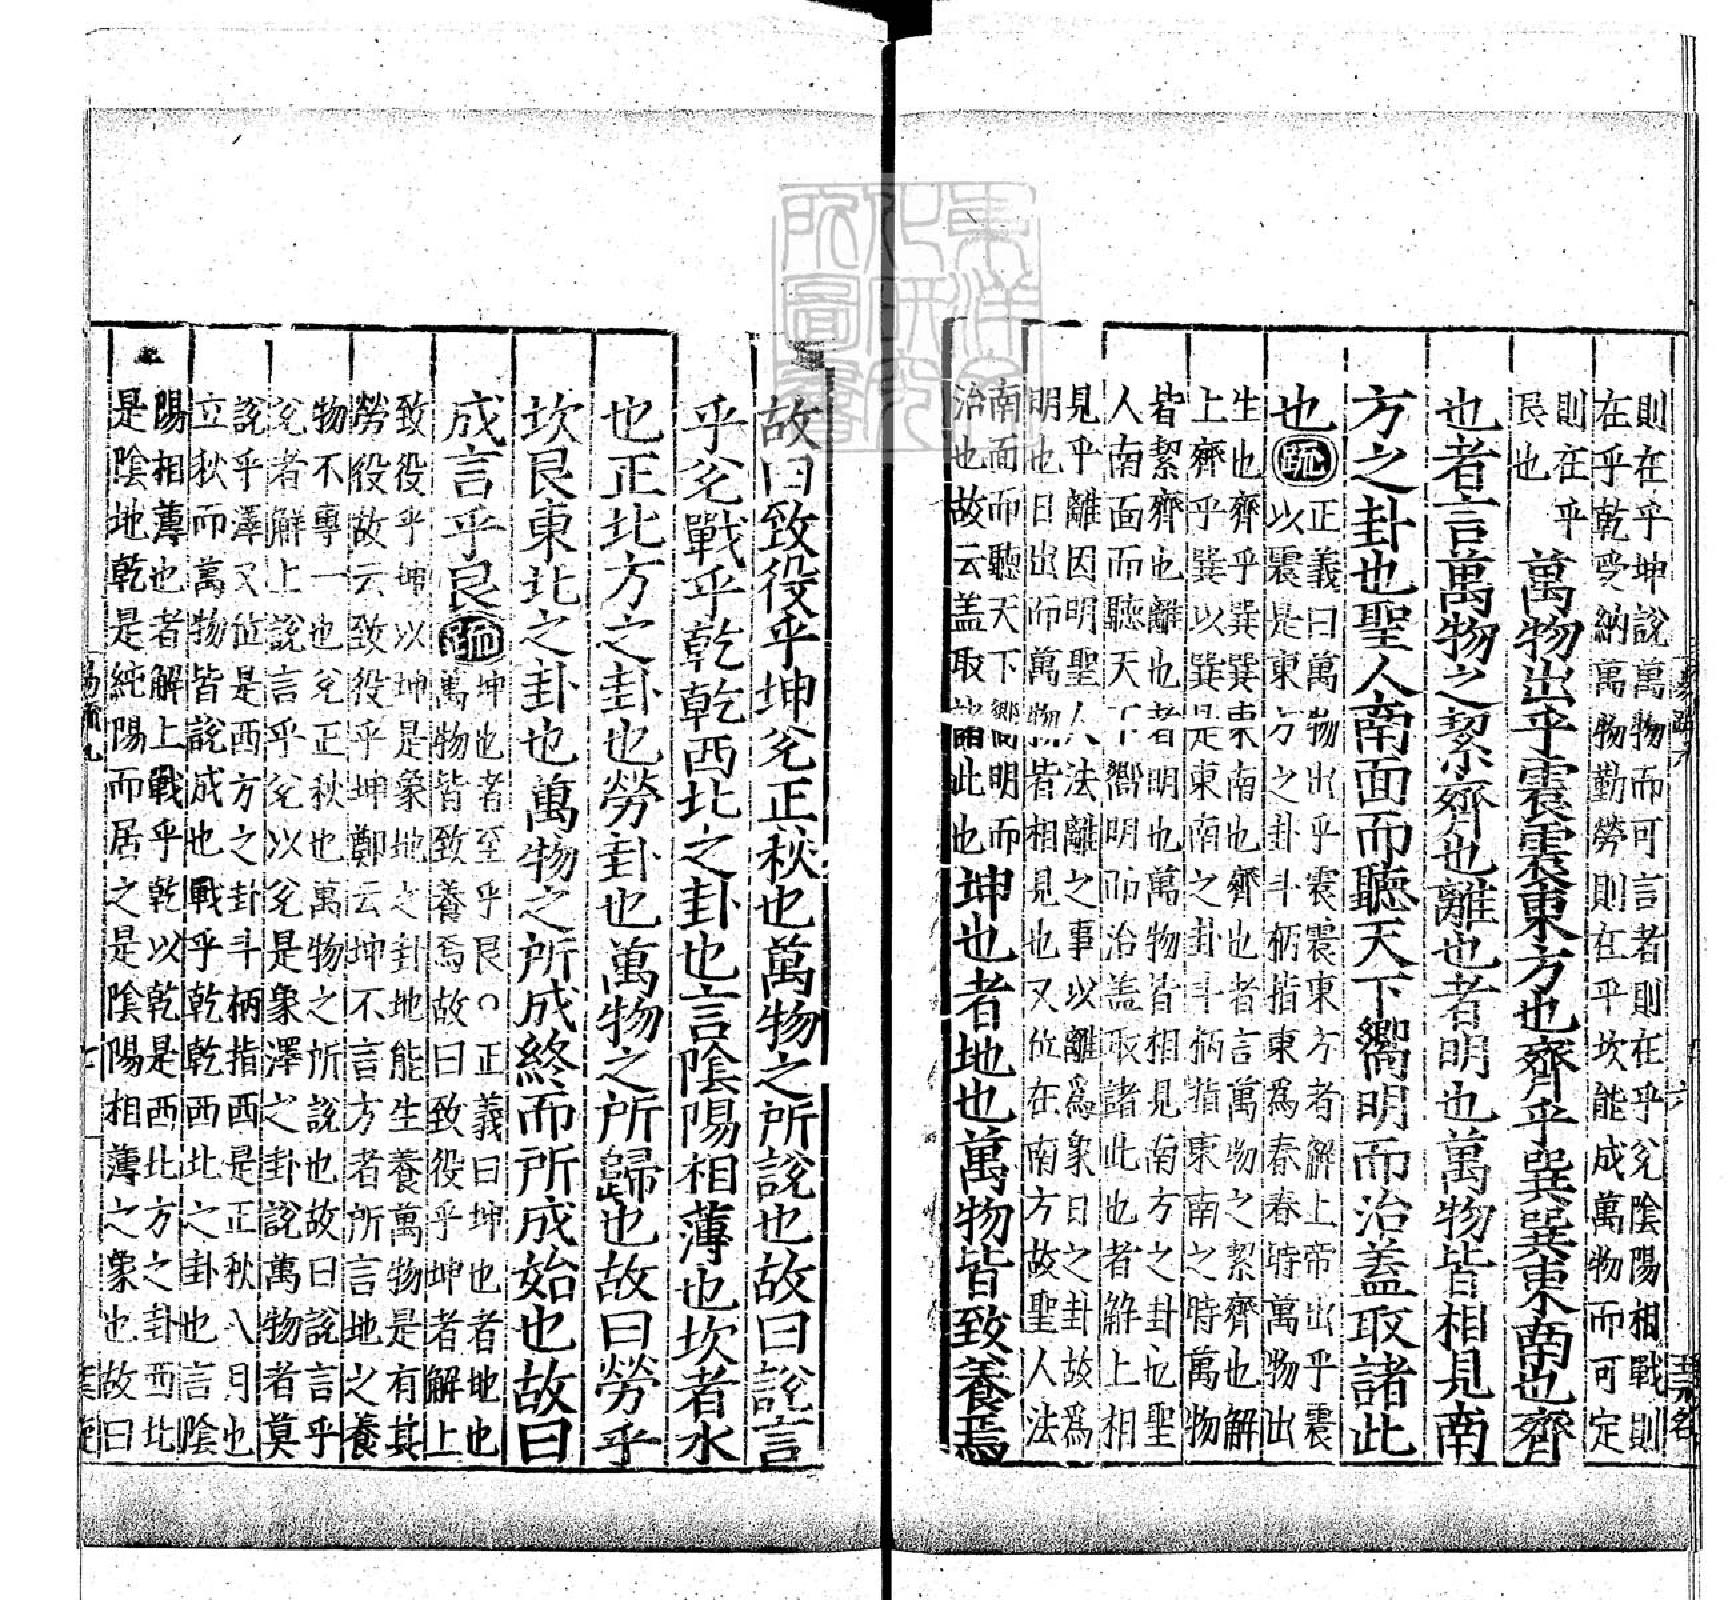 則在乎坤說萬物而可言者則在乎兌陰陽相戰則
在乎乾受納萬物勤勞則在乎坎能成萬物而可定
則在乎
艮也
萬物出乎震震東方也齊乎巽巽東南也齊
也者言萬物之絜齊也離也者明也萬物皆相見南
方之卦也聖人南面而聽天下嚮明而治蓋取諸此
也疏
正義曰萬物出乎震震東方者解上帝出乎震
以震是東方之卦斗柄指東為春春時萬物出
生也齊乎巽巽東南也齊也者言萬物之絜齊也解
上齊乎巽以巽是東南之卦斗柄指東南之時萬物
皆絜齊也離也者明也萬物皆相見南方之卦也聖
人南面而聽天下嚮明而治蓋取諸此也者解上相
見乎離因明聖人法離之事以離為象日之卦故為
明也日出而萬物皆相見也又位在南方故聖人法
南面而聽天下嚮明而
治也故云盖取諸此也
坤也者地也萬物皆致養焉
故曰致役乎坤兌正秋也萬物之所說也故曰說言
乎兌戰乎乾乾西北之卦也言陰陽相薄也坎者水
也正北方之卦也勞卦也萬物之所歸也故曰勞乎
坎艮東北之卦也萬物之所成終而所成始也故曰
成言乎艮疏
坤也者至乎艮○正義曰坤也者地也
萬物皆致養焉故曰致役乎坤者解上
致役乎坤以坤是象地之卦地能生養萬物是有其
勞役故云致役乎坤鄭云坤不言方者所言地之養
物不專一也兌正秋也萬物之所說也故曰說言乎
兌者解上說言乎兌以兌是象澤之卦說萬物者莫
說乎澤又位是西方之卦斗柄指西是正秋八月也
立秋而萬物皆說成也戰乎乾乾西北之卦也言陰
陽相薄也者解上戰乎乾以乾是西北方之卦西北
是陰地乾是純陽而居之是陰陽相薄之象也故曰
東洋文化研究所圖書